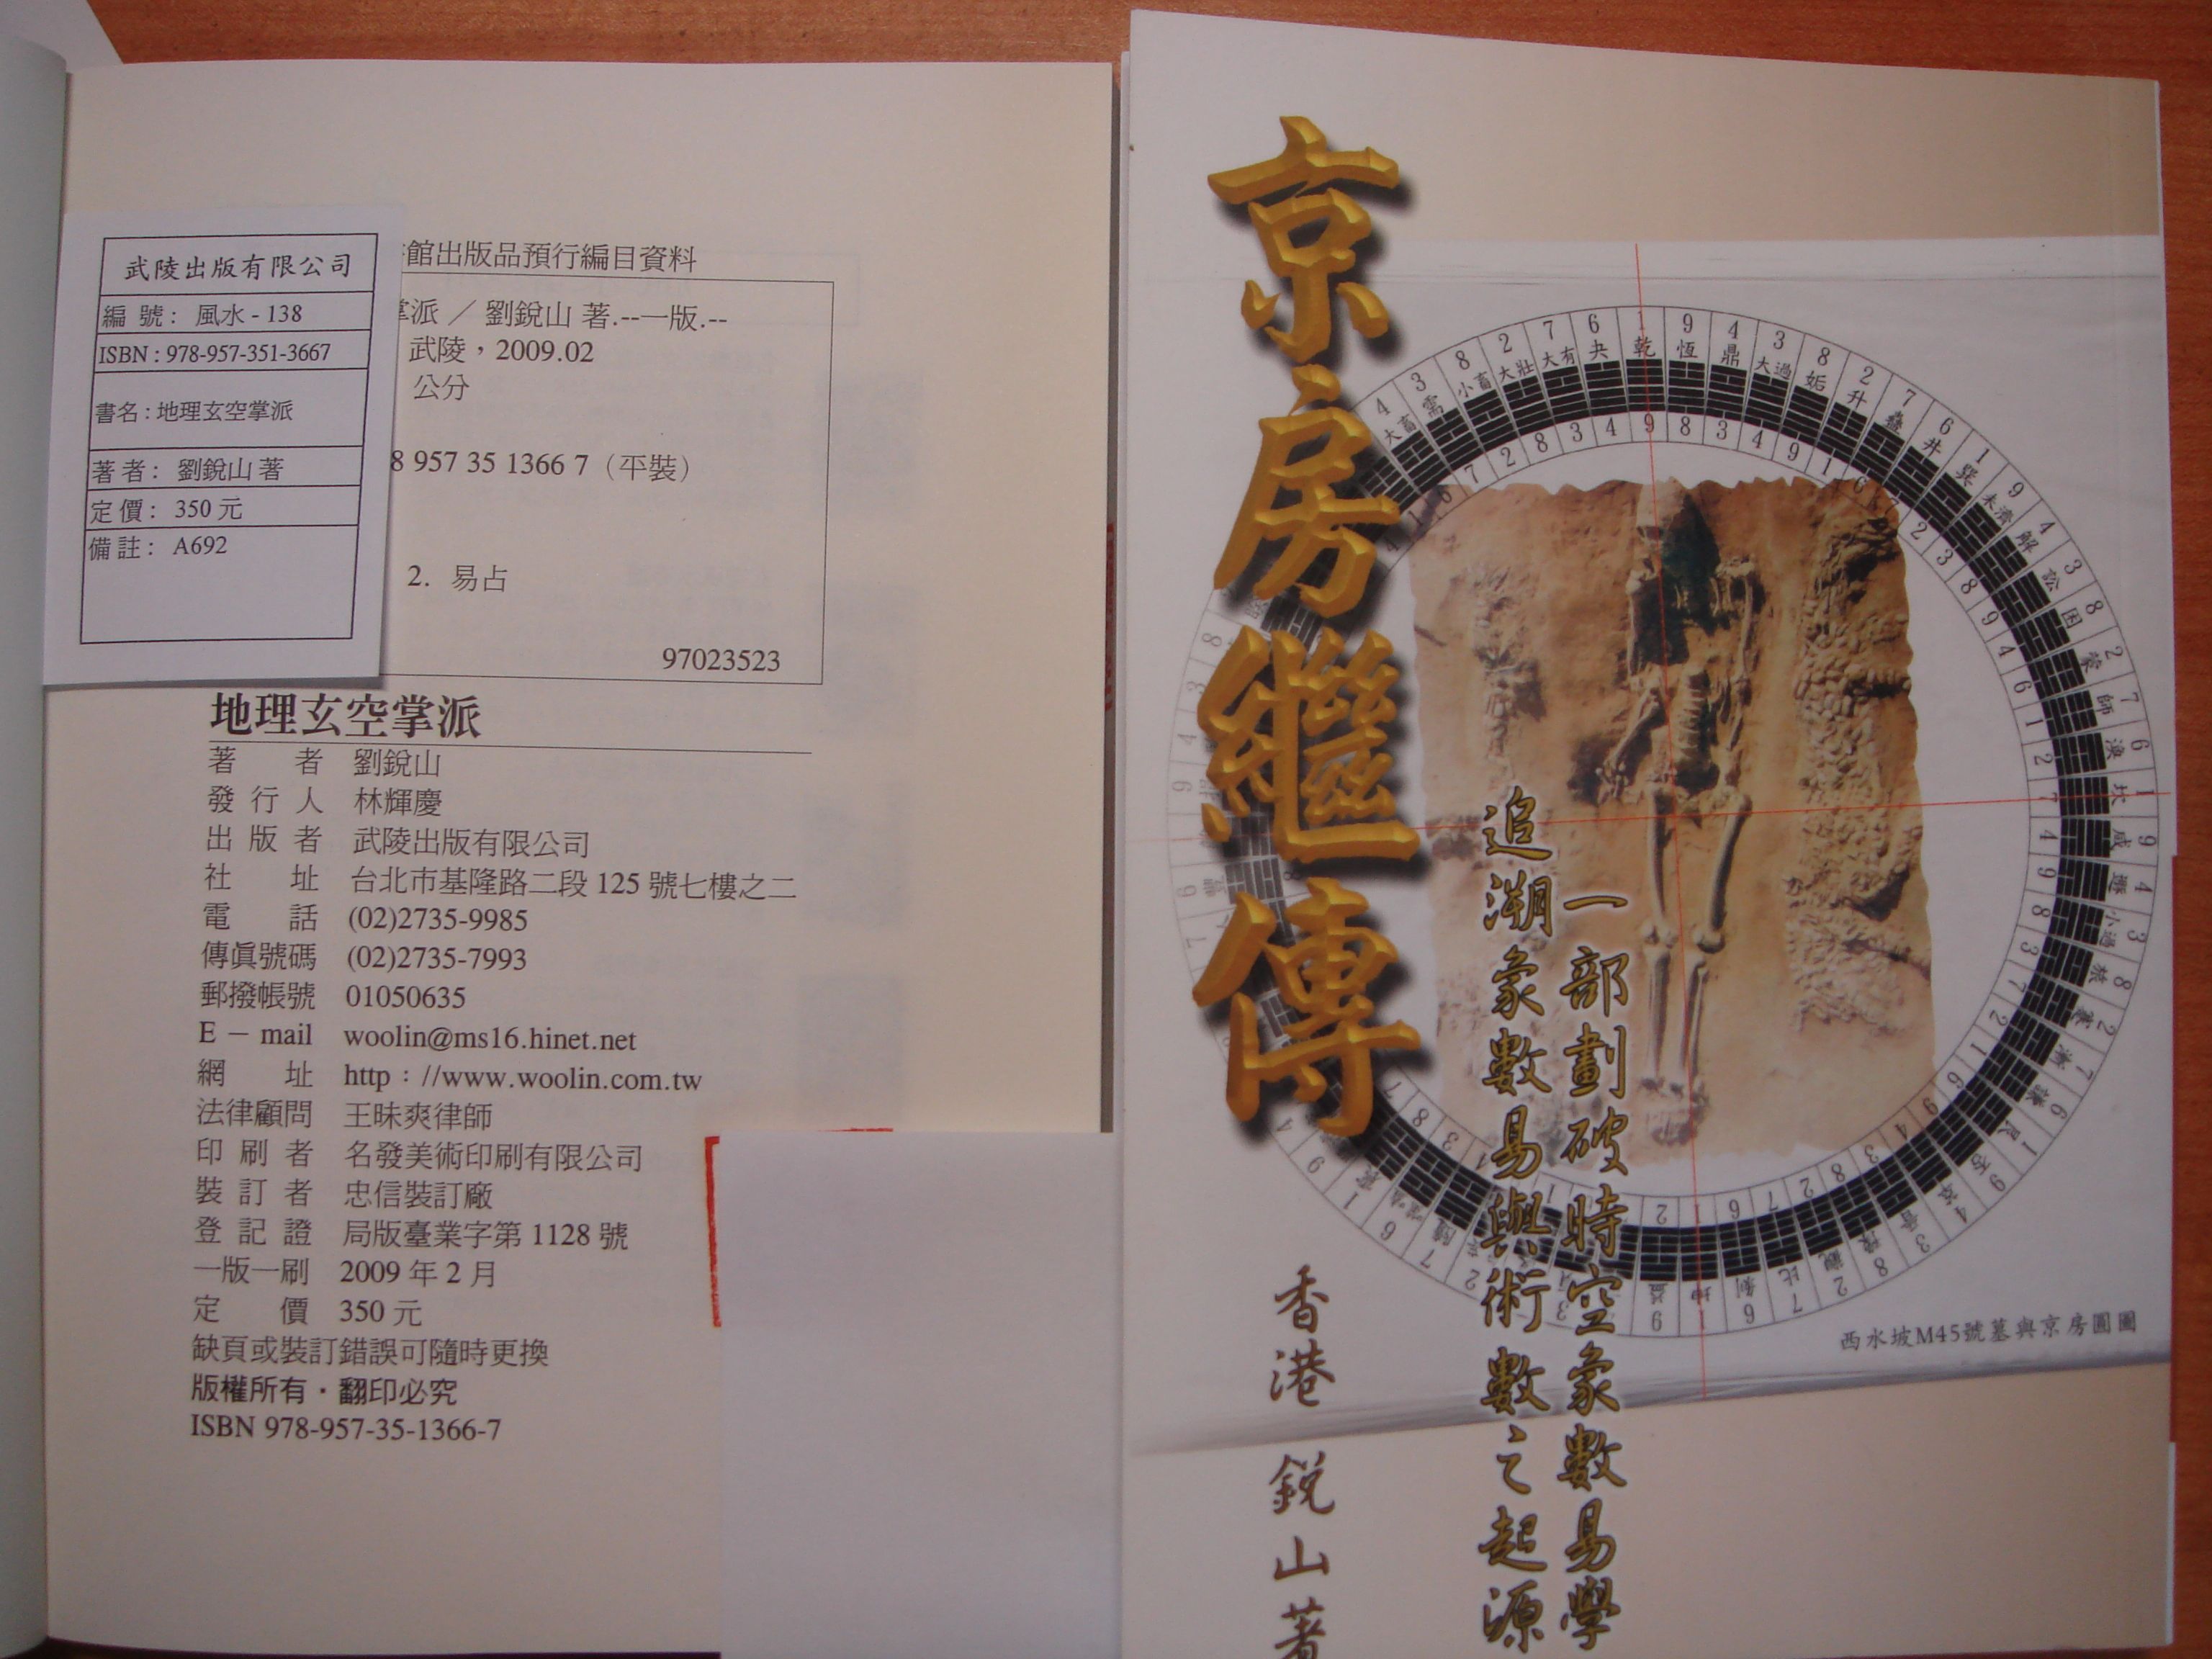 武陵出版有限公司
編 號： 風水 - 138
ISBN : 978-957-351-3667
書名 : 地理玄空掌派
著 者： 劉銳山 著
定 價： 350 元
備 註： A692
館出版品預行編目資料
掌派 ／ 劉銳山 著.--一版.--
武陵，2009.02
公分
8 957 35 1366 7（平裝）
2. 易占
97023523
地理玄空掌派
著 者 劉銳山
發 行 人 林輝慶
出 版 者 武陵出版有限公司
社 址 台北市基隆路二段 125 號七樓之二
電 話 (02)2735-9985
傳眞號碼 (02)2735-7993
郵撥帳號 01050635
E － mail woolin@ms16.hinet.net
網 址 http：//www.woolin.com.tw
法律顧問 王昧爽律師
印 刷 者 名發美術印刷有限公司
裝 訂 者 忠信裝訂廠
登 記 證 局版臺業字第 1128 號
一版一刷 2009 年 2 月
定 價 350 元
缺頁或裝訂錯誤可隨時更換
版權所有・翻印必究
ISBN 978-957-35-1366-7
京房繼傳
一部劃破時空象數易學
追溯象數易與術數之起源
香港 銳山著
4 3 8 2 7 6 1 9 4 3 8 2 7 6 1 9 4 3 8 2 7 6 1 9 4 3 8 2 7 6 1 9 4 3 8 2 7 6 1 9
大畜 需 小畜 大壯 大有 夬 乾 恆 鼎 大過 姤 升 蠱 井 巽 未濟 解 訟 困 蒙 師 渙 坎 咸 遯 小過 旅 蹇 漸 謙 艮 否 萃 晉 豫 觀 比 剝 坤 益
西水坡M45號墓與京房圓圖